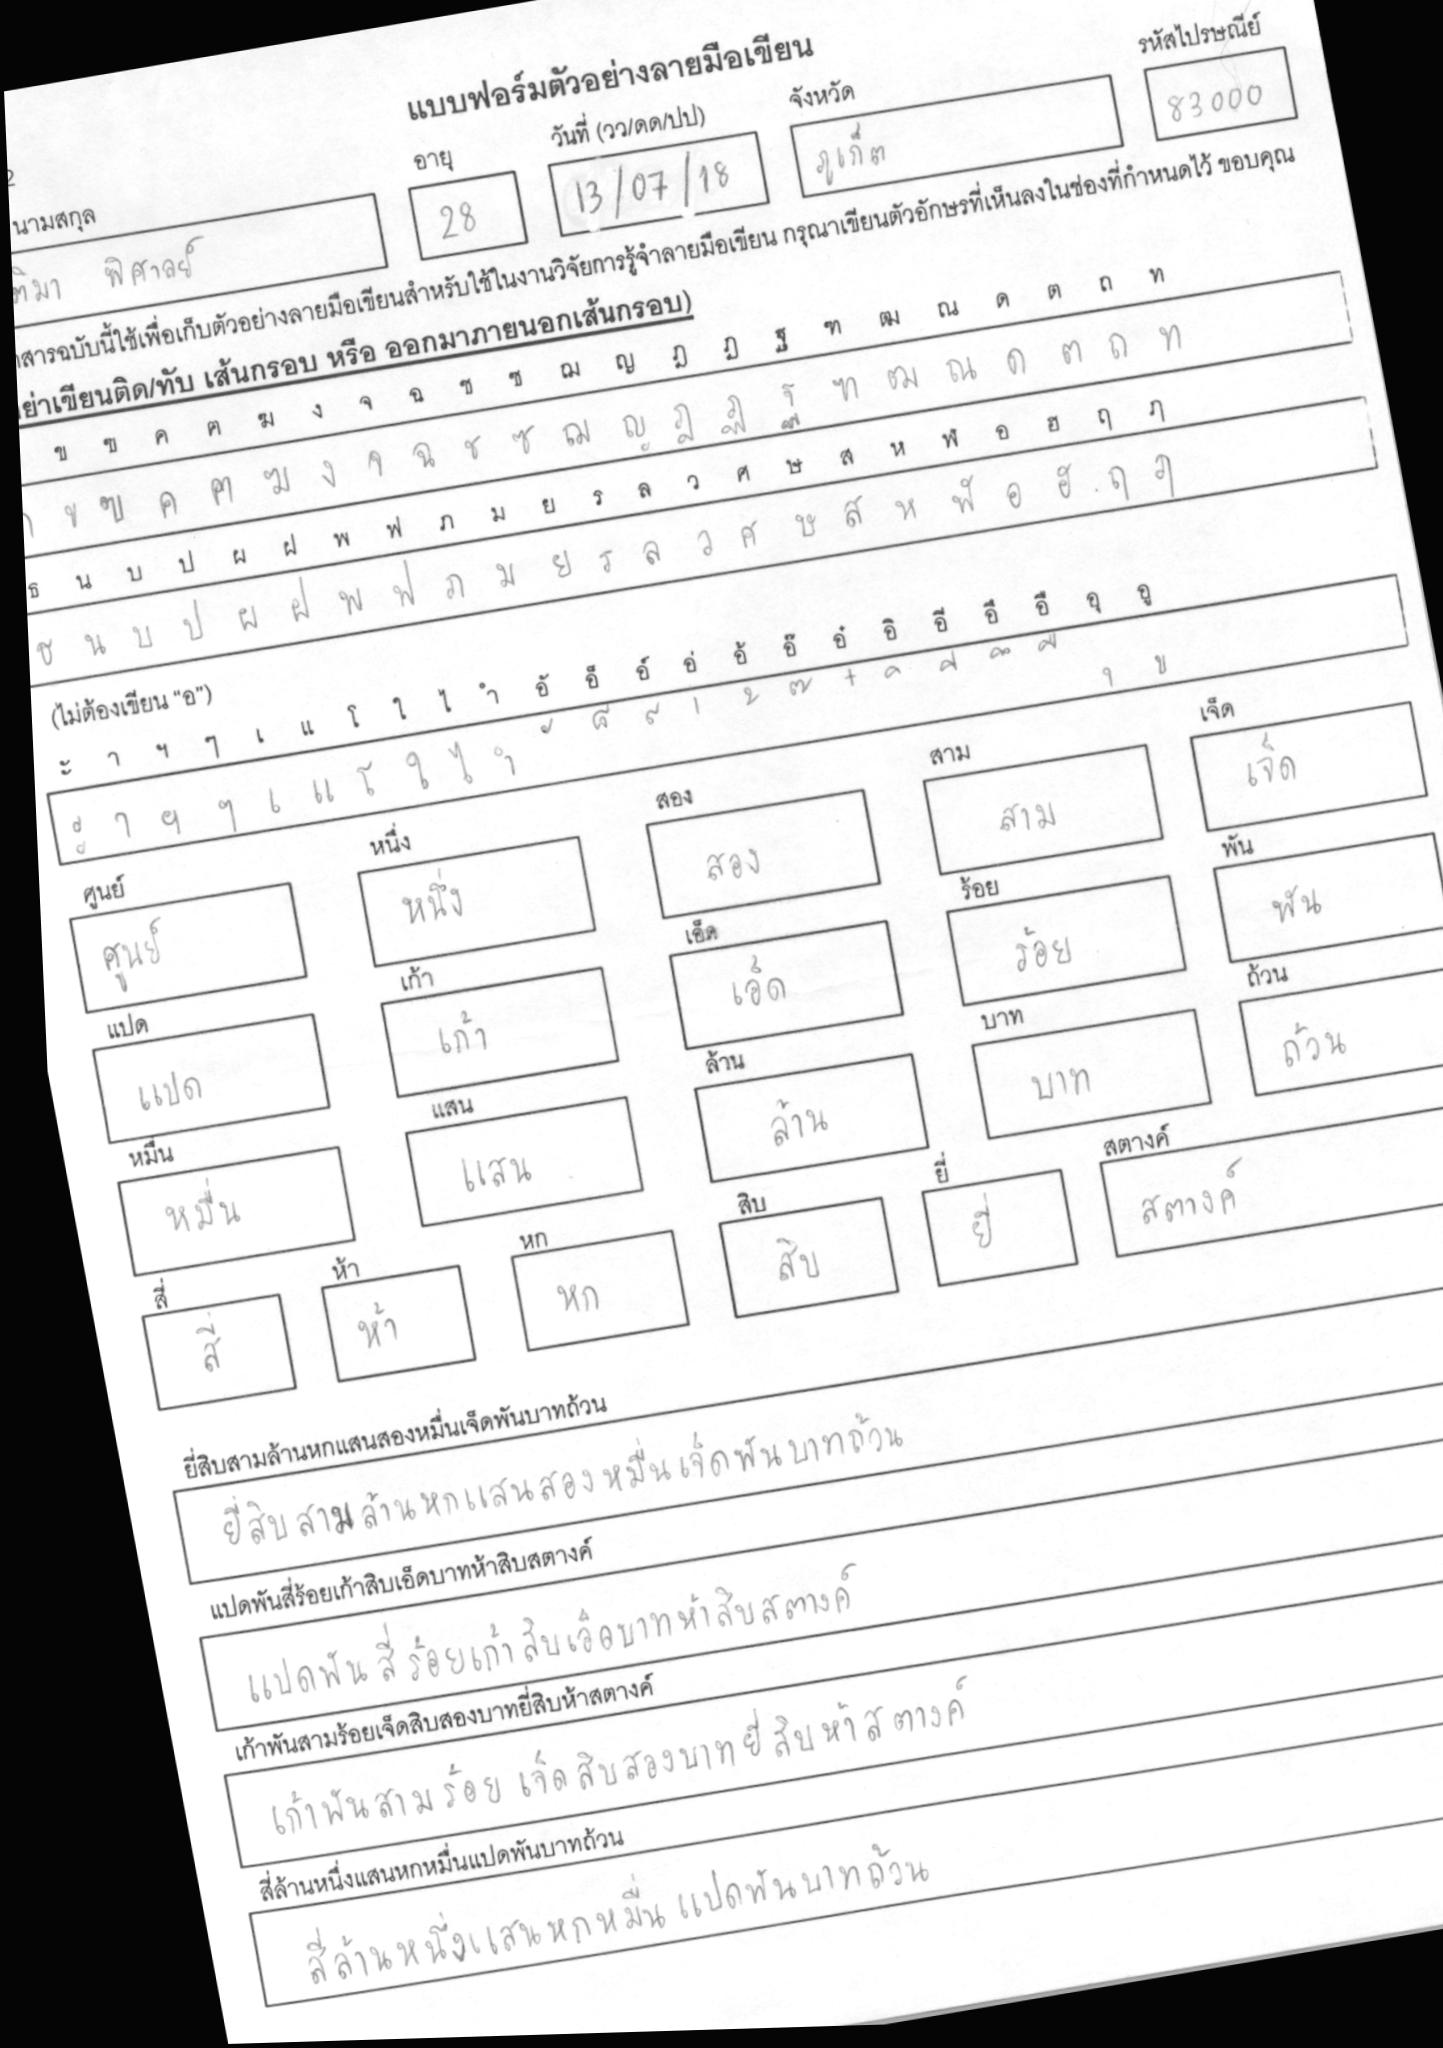 แบบฟอร์มตัวอย่างลายมือเขียน
นามสกุล อายุ วันที่ (วว/ดด/ปป) จังหวัด รหัสไปรษณีย์
พิศาลย์ 28 13/07/18 ภูเก็ต 83000
สารฉบับนี้ใช้เพื่อเก็บตัวอย่างลายมือเขียนสำหรับใช้ในงานวิจัยการรู้จำลายมือเขียน กรุณาเขียนตัวอักษรที่เห็นลงในช่องที่กำหนดไว้ ขอบคุณ
ย่าเขียนติด/ทับ เส้นกรอบ หรือ ออกมาภายนอกเส้นกรอบ)
ข ฃ ค ฅ ฆ ง จ ฉ ช ซ ฌ ญ ฎ ฏ ฐ ฑ ฒ ณ ด ต ถ ท
ข ฃ ค ฅ ฆ ง จ ฉ ช ซ ฌ ญ ฎ ฏ ฐ ฑ ฒ ณ ด ต ถ ท
ธ น บ ป ผ ฝ พ ฟ ภ ม ย ร ล ว ศ ษ ส ห ฬ อ ฮ ฤ ฦ
ธ น บ ป ผ ฝ พ ฟ ภ ม ย ร ล ว ศ ษ ส ห ฬ อ ฮ ฤ ฦ
(ไม่ต้องเขียน “อ”)
ะ า ฯ ๆ เ แ โ ใ ไ ำ อั อ็ อ์ อ่ อ้ อ๊ อ๋ อิ อี อึ อื อุ อู
ะ า ฯ ๆ เ แ โ ใ ไ ำ ั ็ ์ ่ ้ ๊ ๋ ิ ี ึ ื ุ ู
ศูนย์ หนึ่ง สอง สาม เจ็ด
ศูนย์ หนึ่ง สอง สาม เจ็ด
แปด เก้า เอ็ด ร้อย พัน
แปด เก้า เอ็ด ร้อย พัน
หมื่น แสน ล้าน บาท ถ้วน
หมื่น แสน ล้าน บาท ถ้วน
สี่ ห้า หก สิบ ยี่ สตางค์
สี่ ห้า หก สิบ ยี่ สตางค์
ยี่สิบสามล้านหกแสนสองหมื่นเจ็ดพันบาทถ้วน
ยี่สิบสามล้านหกแสนสองหมื่นเจ็ดพันบาทถ้วน
แปดพันสี่ร้อยเก้าสิบเอ็ดบาทห้าสิบสตางค์
แปดพันสี่ร้อยเก้าสิบเอ็ดบาทห้าสิบสตางค์
เก้าพันสามร้อยเจ็ดสิบสองบาทยี่สิบห้าสตางค์
เก้าพันสามร้อย เจ็ดสิบสองบาทยี่สิบห้าสตางค์
สี่ล้านหนึ่งแสนหกหมื่นแปดพันบาทถ้วน
สี่ล้านหนึ่งแสนหกหมื่น แปดพันบาทถ้วน